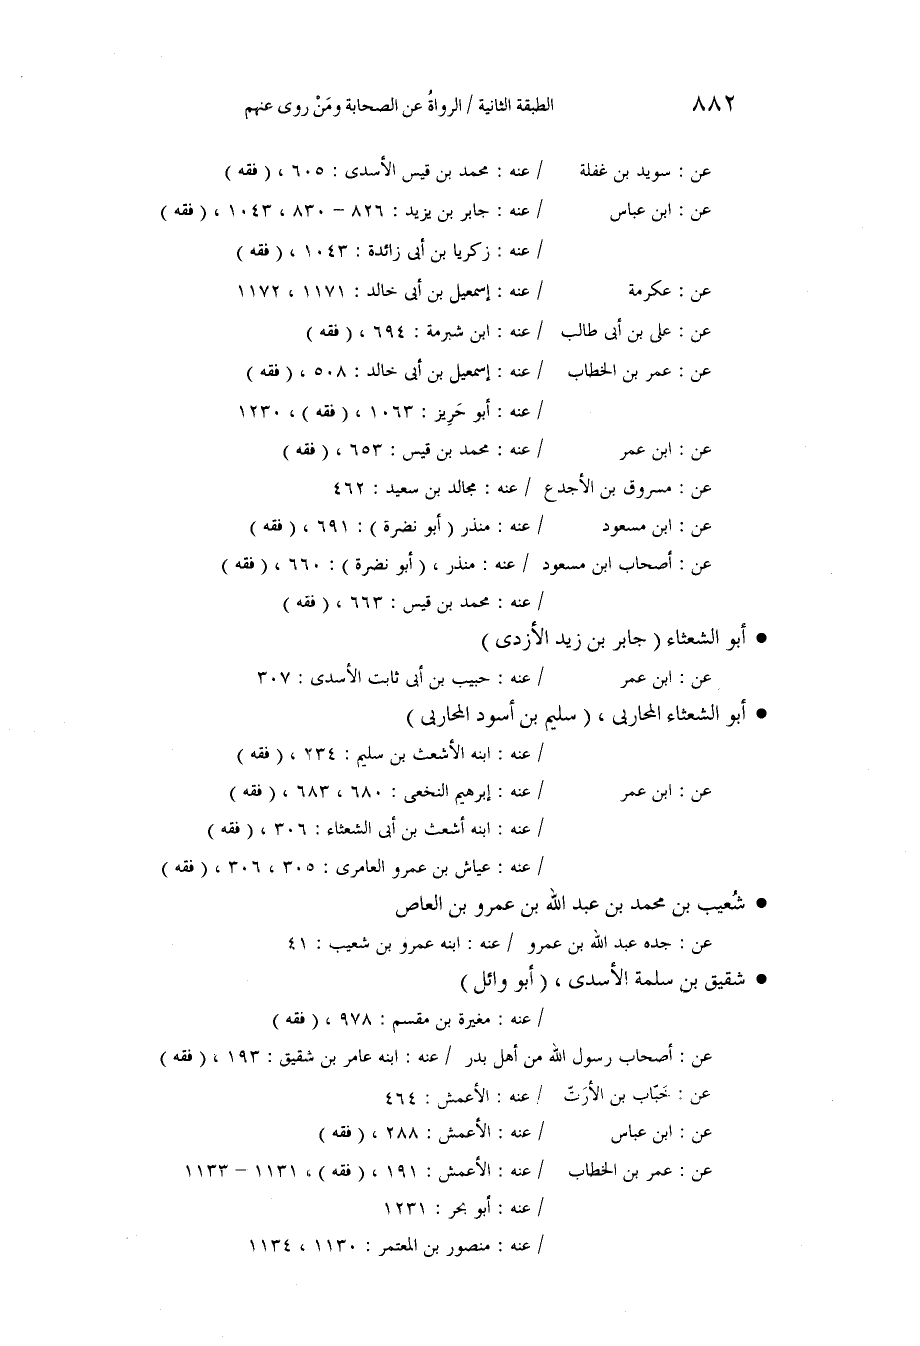 ٨٨٢ الطبقة الثانية / الرواةُ عن الصحابة ومَنْ روى عنهم
عن : سويد بن غفلة / عنه : محمد بن قيس الأسدى : ٦٠٥ ، ( فقه )
عن : ابن عباس / عنه : جابر بن يزيد : ٨٢٦ – ٨٣٠ ، ١٠٤٣ ، ( فقه )
/ عنه : زكريا بن أبى زائدة : ١٠٤٣ ، ( فقه )
عن : عكرمة / عنه : إسمعيل بن أبى خالد : ١١٧١ ، ١١٧٢
عن : على بن أبى طالب / عنه : ابن شبرمة : ٦٩٤ ، ( فقه )
عن : عمر بن الخطاب / عنه : إسمعيل بن أبى خالد : ٥٠٨ ، ( فقه )
/ عنه : أبو حَرِيز : ١٠٦٣ ، ( فقه ) ، ١٢٣٠
عن : ابن عمر / عنه : محمد بن قيس : ٦٥٣ ، ( فقه )
عن : مسروق بن الأجدع / عنه : مجالد بن سعيد : ٤٦٢
عن : ابن مسعود / عنه : منذر ( أبو نضرة ) : ٦٩١ ، ( فقه )
عن : أصحاب ابن مسعود / عنه : منذر ، ( أبو نضرة ) : ٦٦٠ ، ( فقه )
/ عنه : محمد بن قيس : ٦٦٣ ، ( فقه )
● أبو الشعثاء ( جابر بن زيد الأزدى )
عن : ابن عمر / عنه : حبيب بن أبى ثابت الأسدى : ٣٠٧
● أبو الشعثاء المحاربى ، ( سليم بن أسود المحاربى )
/ عنه : ابنه الأشعث بن سليم : ٢٣٤ ، ( فقه )
عن : ابن عمر / عنه : إبرهيم النخعى : ٦٨٠ ، ٦٨٣ ، ( فقه )
/ عنه : ابنه أشعث بن أبى الشعثاء : ٣٠٦ ، ( فقه )
/ عنه : عياش بن عمرو العامرى : ٣٠٥ ، ٣٠٦ ، ( فقه )
● شُعيب بن محمد بن عبد الله بن عمرو بن العاص
عن : جده عبد الله بن عمرو / عنه : ابنه عمرو بن شعيب : ٤١
● شقيق بن سلمة الأسدى ، ( أبو وائل )
/ عنه : مغيرة بن مقسم : ٩٧٨ ، ( فقه )
عن : أصحاب رسول الله من أهل بدر / عنه : ابنه عامر بن شقيق : ١٩٣ ، ( فقه )
عن : خَبّاب بن الأرَتّ / عنه : الأعمش : ٤٦٤
عن : ابن عباس / عنه : الأعمش : ٢٨٨ ، ( فقه )
عن : عمر بن الخطاب / عنه : الأعمش : ١٩١ ، ( فقه ) ، ١١٣١ – ١١٣٣
/ عنه : أبو بحر : ١٢٣١
/ عنه : منصور بن المعتمر : ١١٣٠ ، ١١٣٤